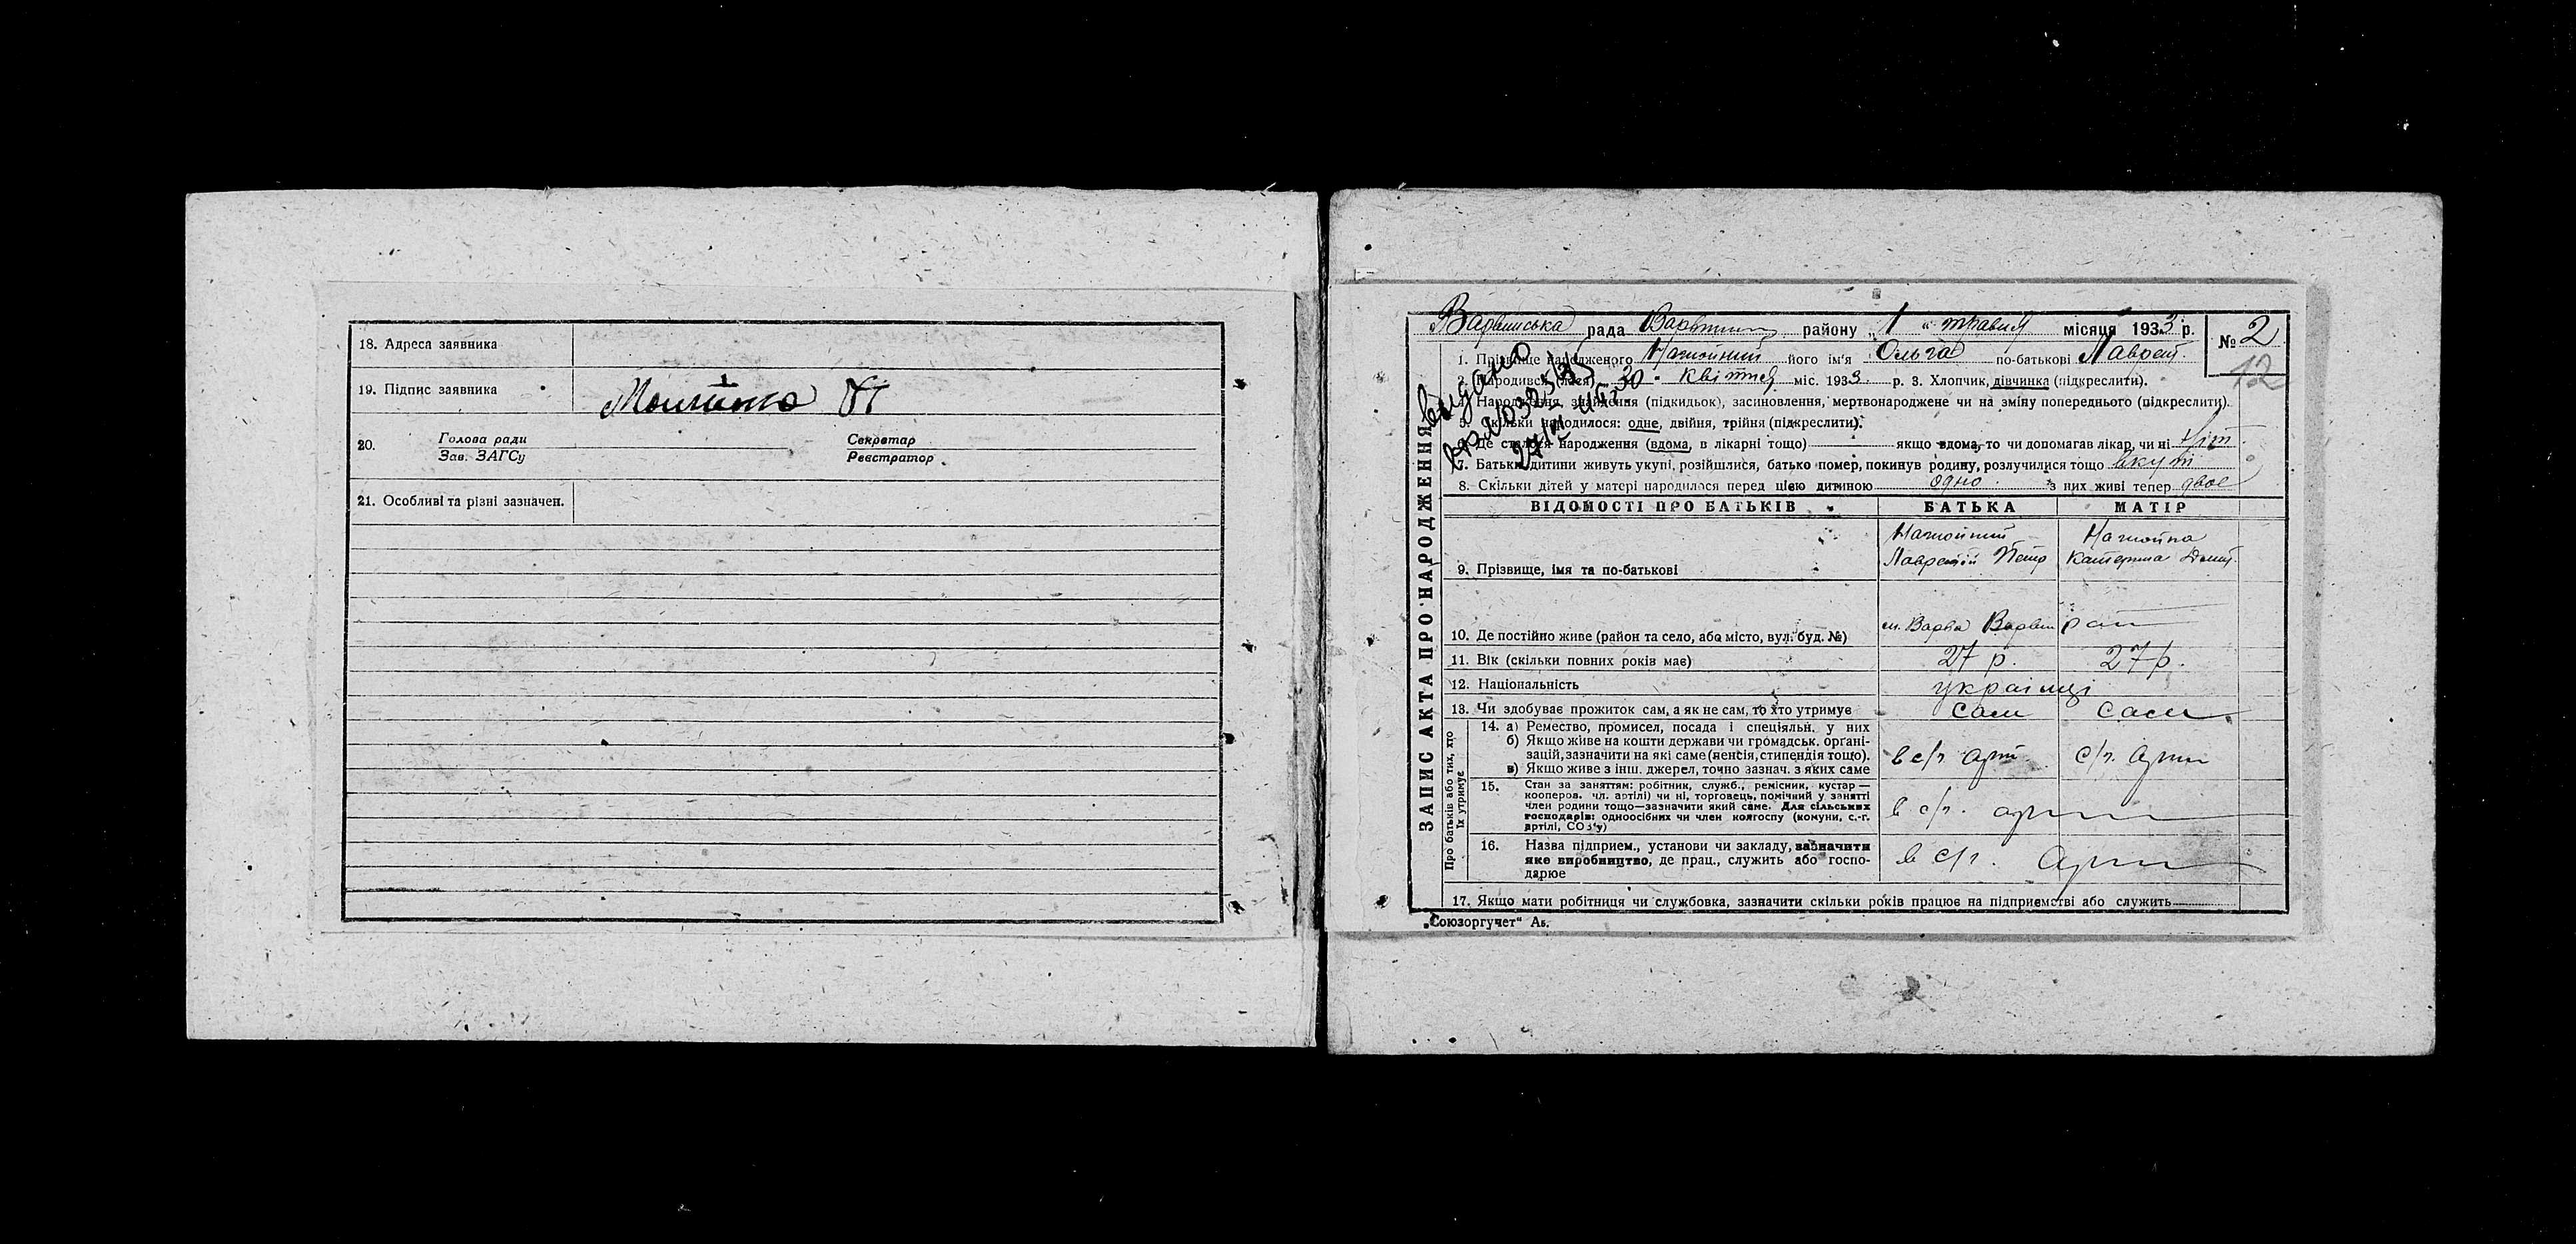 18. Адреса заявника
19. Підпис заявника
20. Голова ради Секретар
Зав. ЗАГСу Реєстратор
21. Особливі та різні зазначен.
Варвинська рада району „1“ травня місяця 1933 р. № 2
12
видано
1. Прізвище народженого його ім'я Ольга по-батькові Лаврент.
Народився (лася) 30 квітня міс. 1933 р. 3. Хлопчик, дівчинка (підкреслити).
4. Народження, знайдення (підкидьок), засиновлення, мертвонароджене чи на зміну попереднього (підкреслити).
5. Скільки народилося: одне, двійня, трійня (підкреслити).
6. Де сталося народження (вдома, в лікарні тощо) якщо вдома, то чи допомагав лікар, чи ні Ніт
7. Батьки дитини живуть укупі, розійшлися, батько помер, покинув родину, розлучилися тощо вкупі
8. Скільки дітей у матері народилося перед цією дитиною одно з них живі тепер двое
ЗАПИС АКТА ПРО НАРОДЖЕННЯ
ВІДОМОСТІ ПРО БАТЬКІВ БАТЬКА МАТІР
9. Прізвище, імя та по-батькові Лаврентій Петр Катерина
10. Де постійно живе (район та село, або місто, вул. буд. №) м. Варва Варвин рай
11. Вік (скільки повних років має) 27 р. 27 р.
12. Національність українці
13. Чи здобуває прожиток сам, а як не сам, то хто утримує сам сама
Про батьків або тих, хто їх утримує
14. а) Ремество, промисел, посада і спеціяльн. у них
б) Якщо живе на кошти держави чи громадськ. органі-
зацій, зазначити на які саме (пенсія, стипендія тощо).
в) Якщо живе з інш. джерел, точно зазнач. з яких саме
в с/г. арт. с/г. арти
15. Стан за заняттям: робітник, служб., ремісник, кустар—
кооперов. чл. артілі) чи ні, торговець, помічний у занятті
член родини тощо—зазначити який саме. Для сільських
господарів: одноосібник чи член колгоспу (комуни, с.-г.
артілі, СОЗ'у)
в с/г. арти
16. Назва підприєм., установи чи закладу, зазначити
яке виробництво, де прац., служить або госпо-
дарює
в с/г. Арти
17. Якщо мати робітниця чи службовка, зазначити скільки років працює на підприємстві або служить
„Союзоргучет“